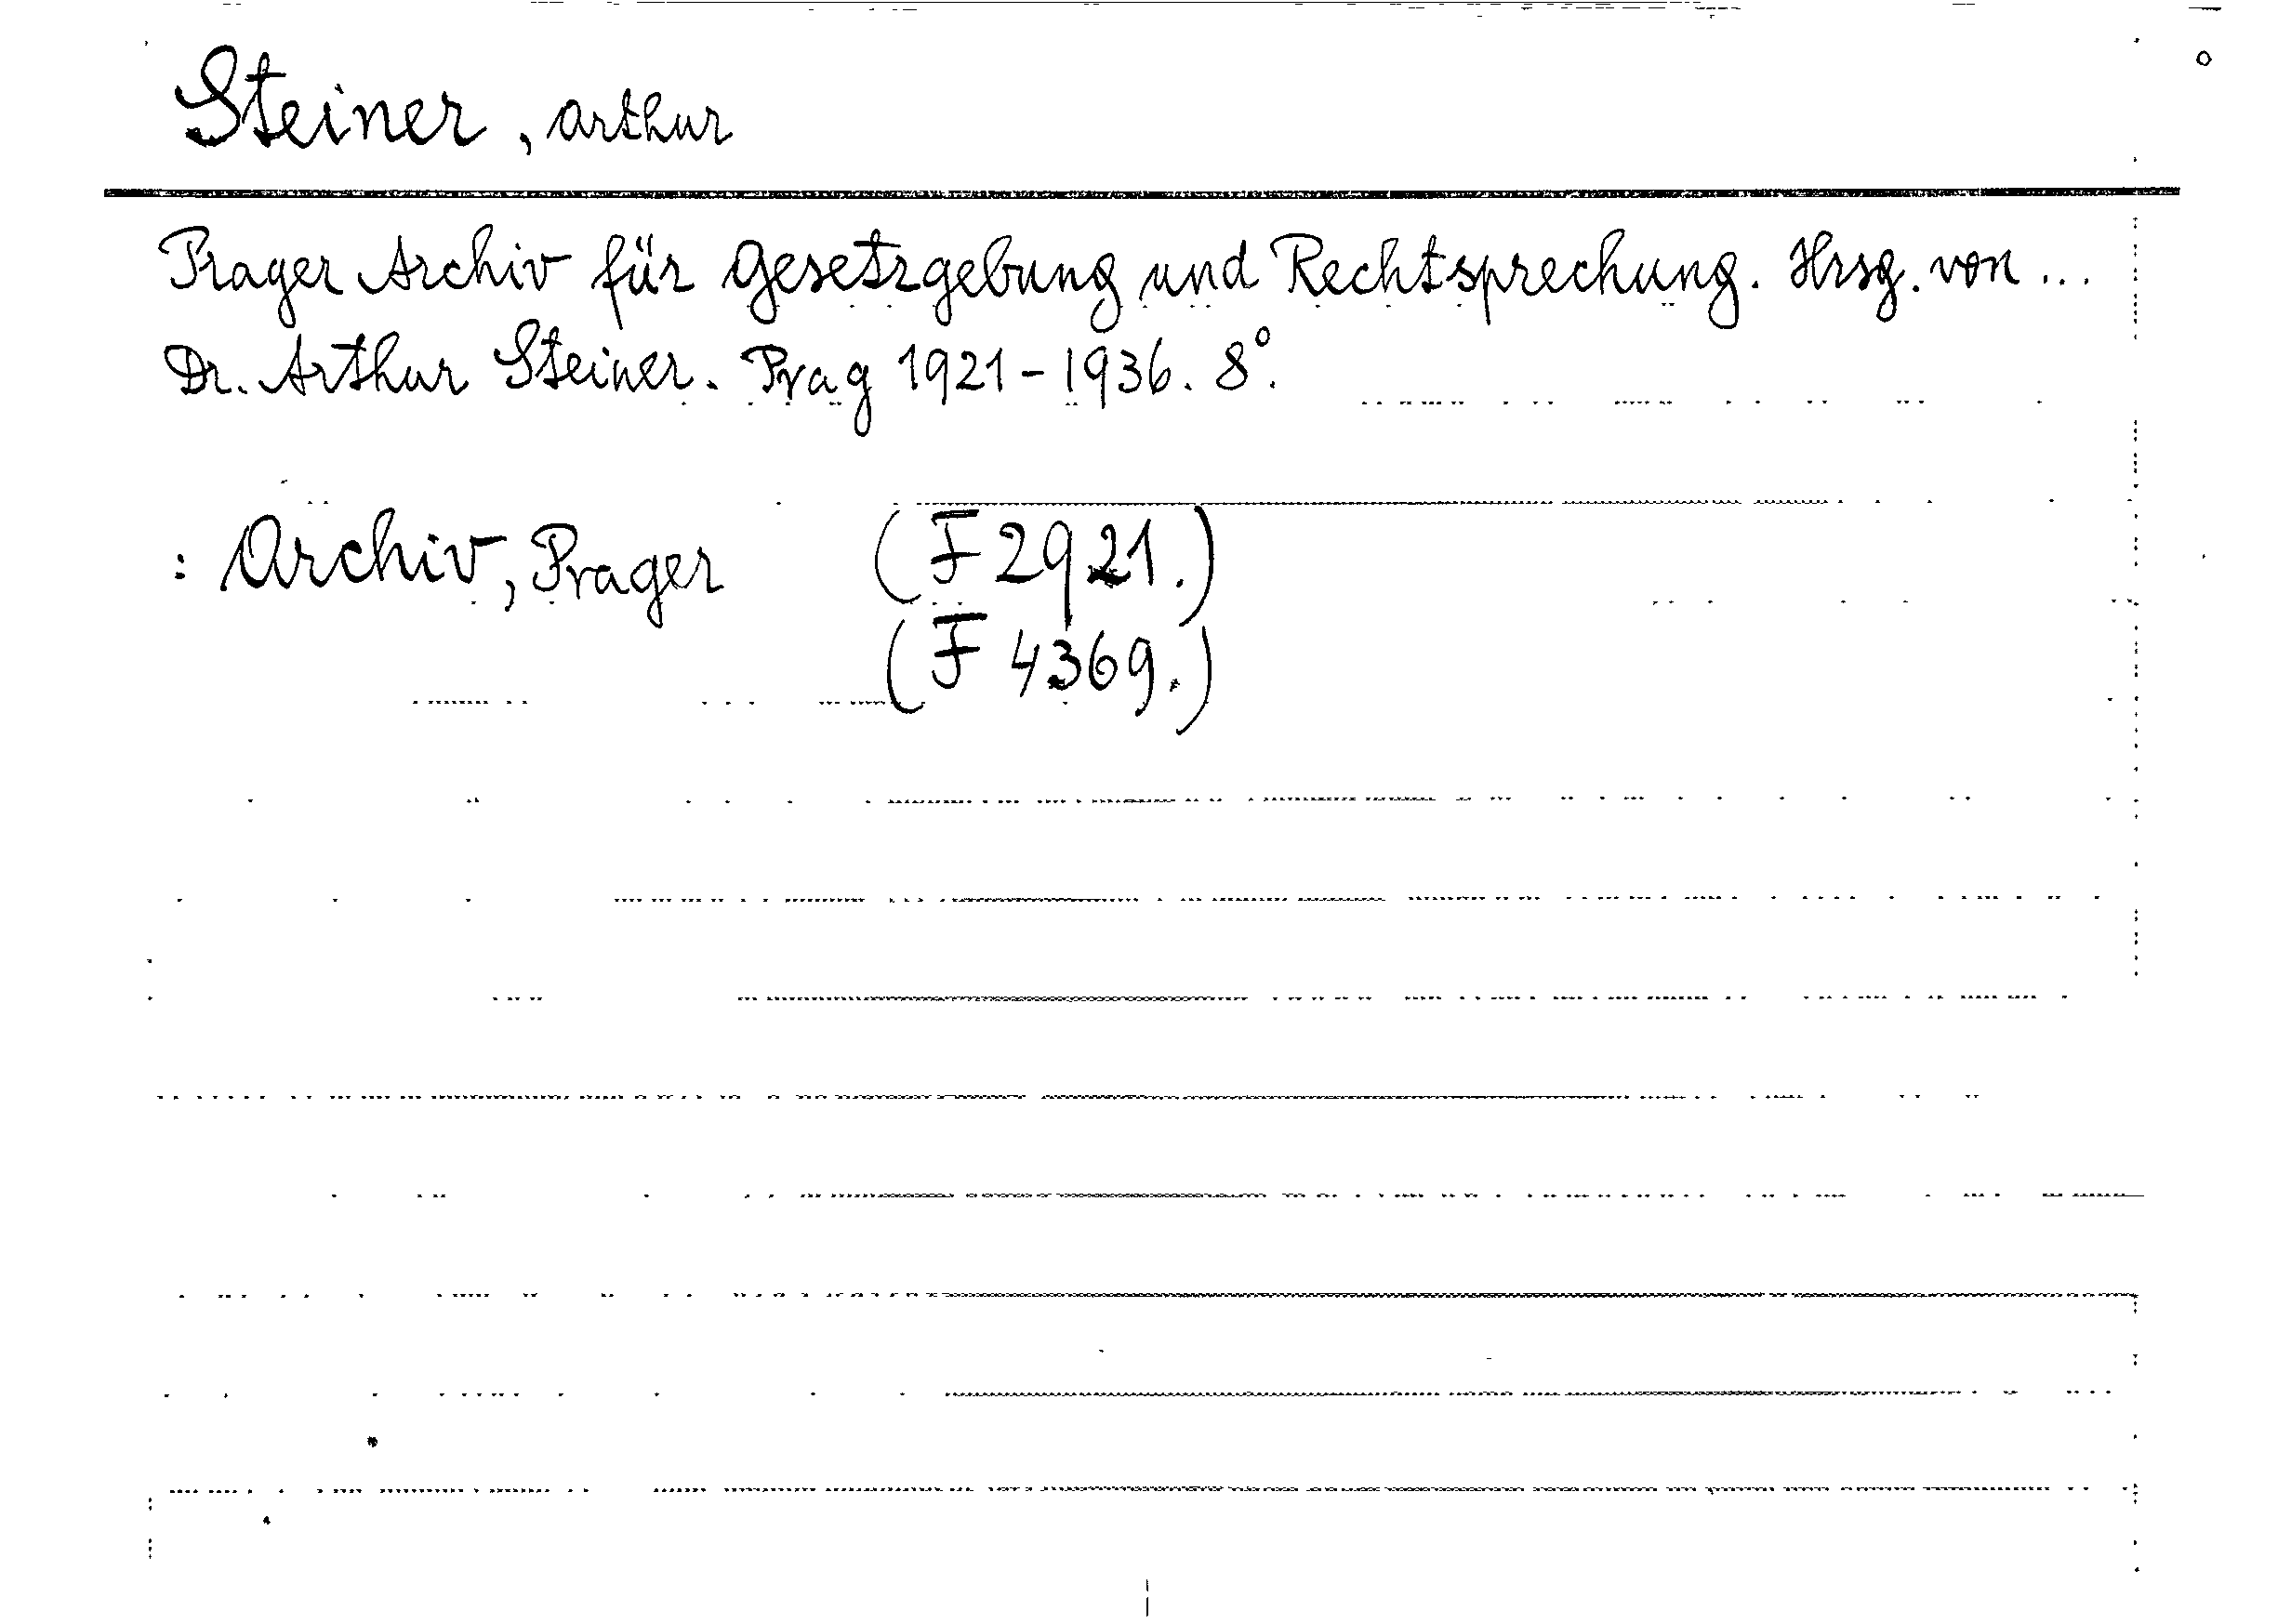 Steiner, Arthur
Prager Archiv für Gesetzgebung und Rechtsprechung. Hrsg. von ...
Dr. Arthur Steiner. Prag 1921-1936. 8°.
: Archiv, Prager (F 2921.)
(F 4369.)